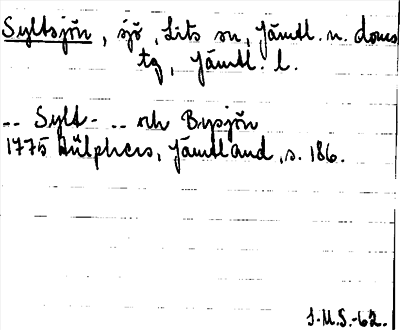 Syltsjön, sjö, Lits sn, Jämtl. n. doms
tg, Jämtl. l.
.. Sylt- .. och Bysjön
1775 Hülphers, Jämtland, s. 186.
J.M.S.-62.